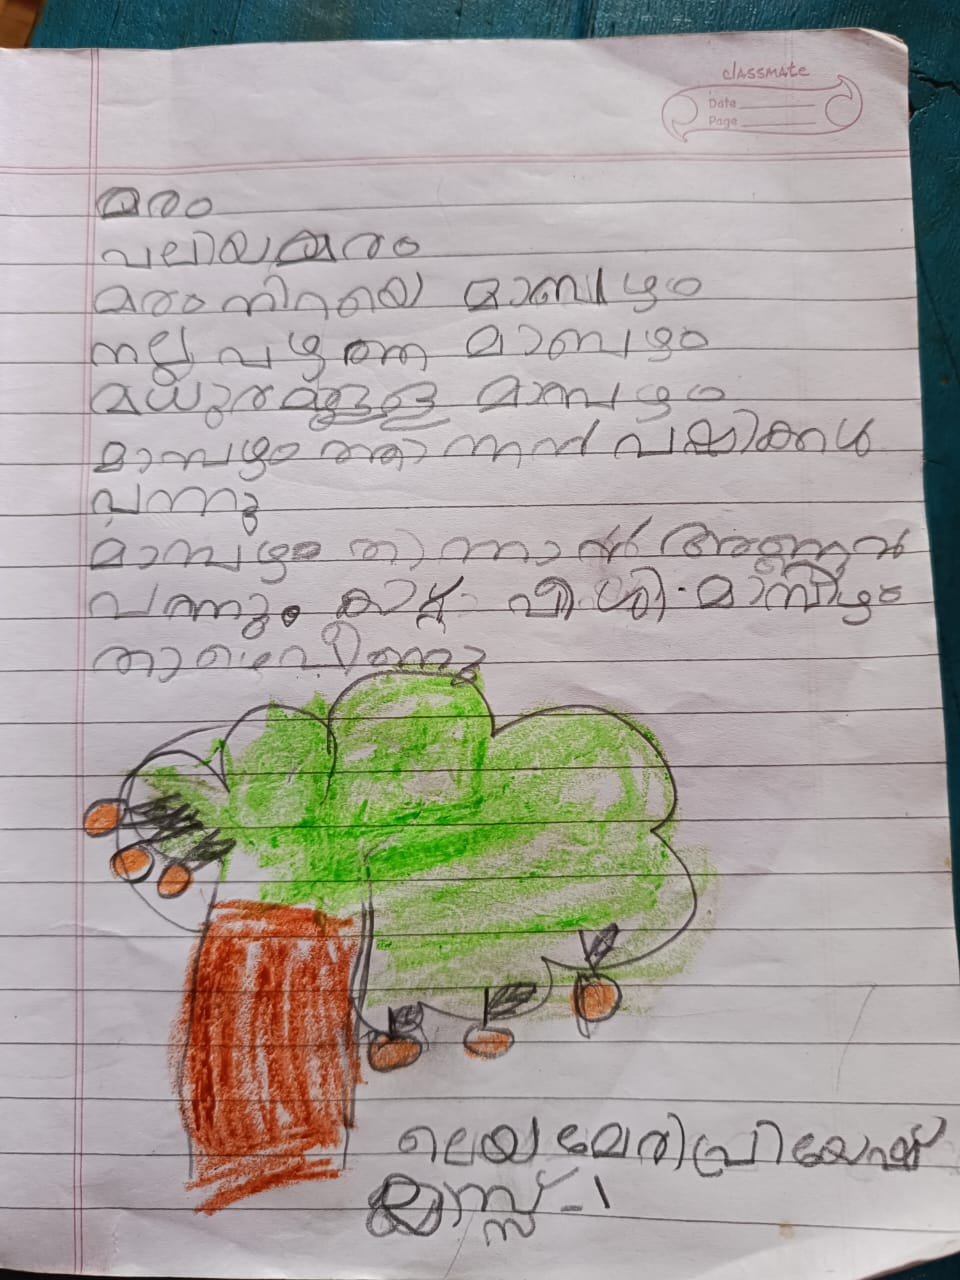 classmate
Date
Page
മരം
വലിയമരം
മരം നിറയെ മാമ്പഴം
നല്ല പഴുത്ത മാമ്പഴം
മധുരമുള്ള മാമ്പഴം
മാമ്പഴം തിന്നാൻ
വന്നു
മാമ്പഴം തിന്നാൻ അണ്ണാൻ
വന്നു. മാമ്പഴം
താഴെവീണു
ക്ലാസ്സ്-1